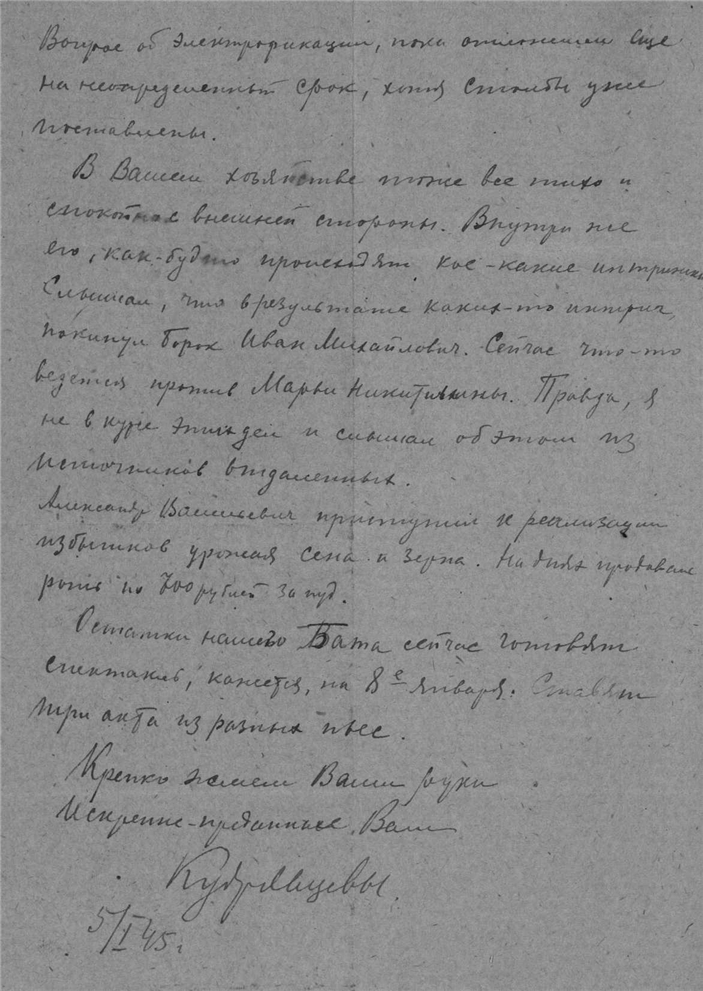 Вопрос об электрофикации, пока отложили еще
на неопределенный срок, хотя столбы уже
поставлены.
В Вашем хозяйстве тоже все тихо и
спокойно с внешней стороны. Внутри же
его, как-будто происходят кое-какие интрижки
Слышал, что в результате каких-то интриг,
покинул Борок Иван Михайлович. Сейчас что-то
ведется против Марьи Никитишны. Правда, я
не в курсе этих дел и слышал об этом из
источников отдаленных.
Александр Васильевич приступил к реализации
избытков урожая сена и зерна. На днях продавали
рожь по 700 рублей за пуд.
Остатки нашего Бата сейчас готовят
спектакль, кажется, на 8е января. Ставят
три акта из разных пьес.
Крепко жмем Ваши руки
Искренне-преданные Вам
Кудрявцевы.
5/I 45 г